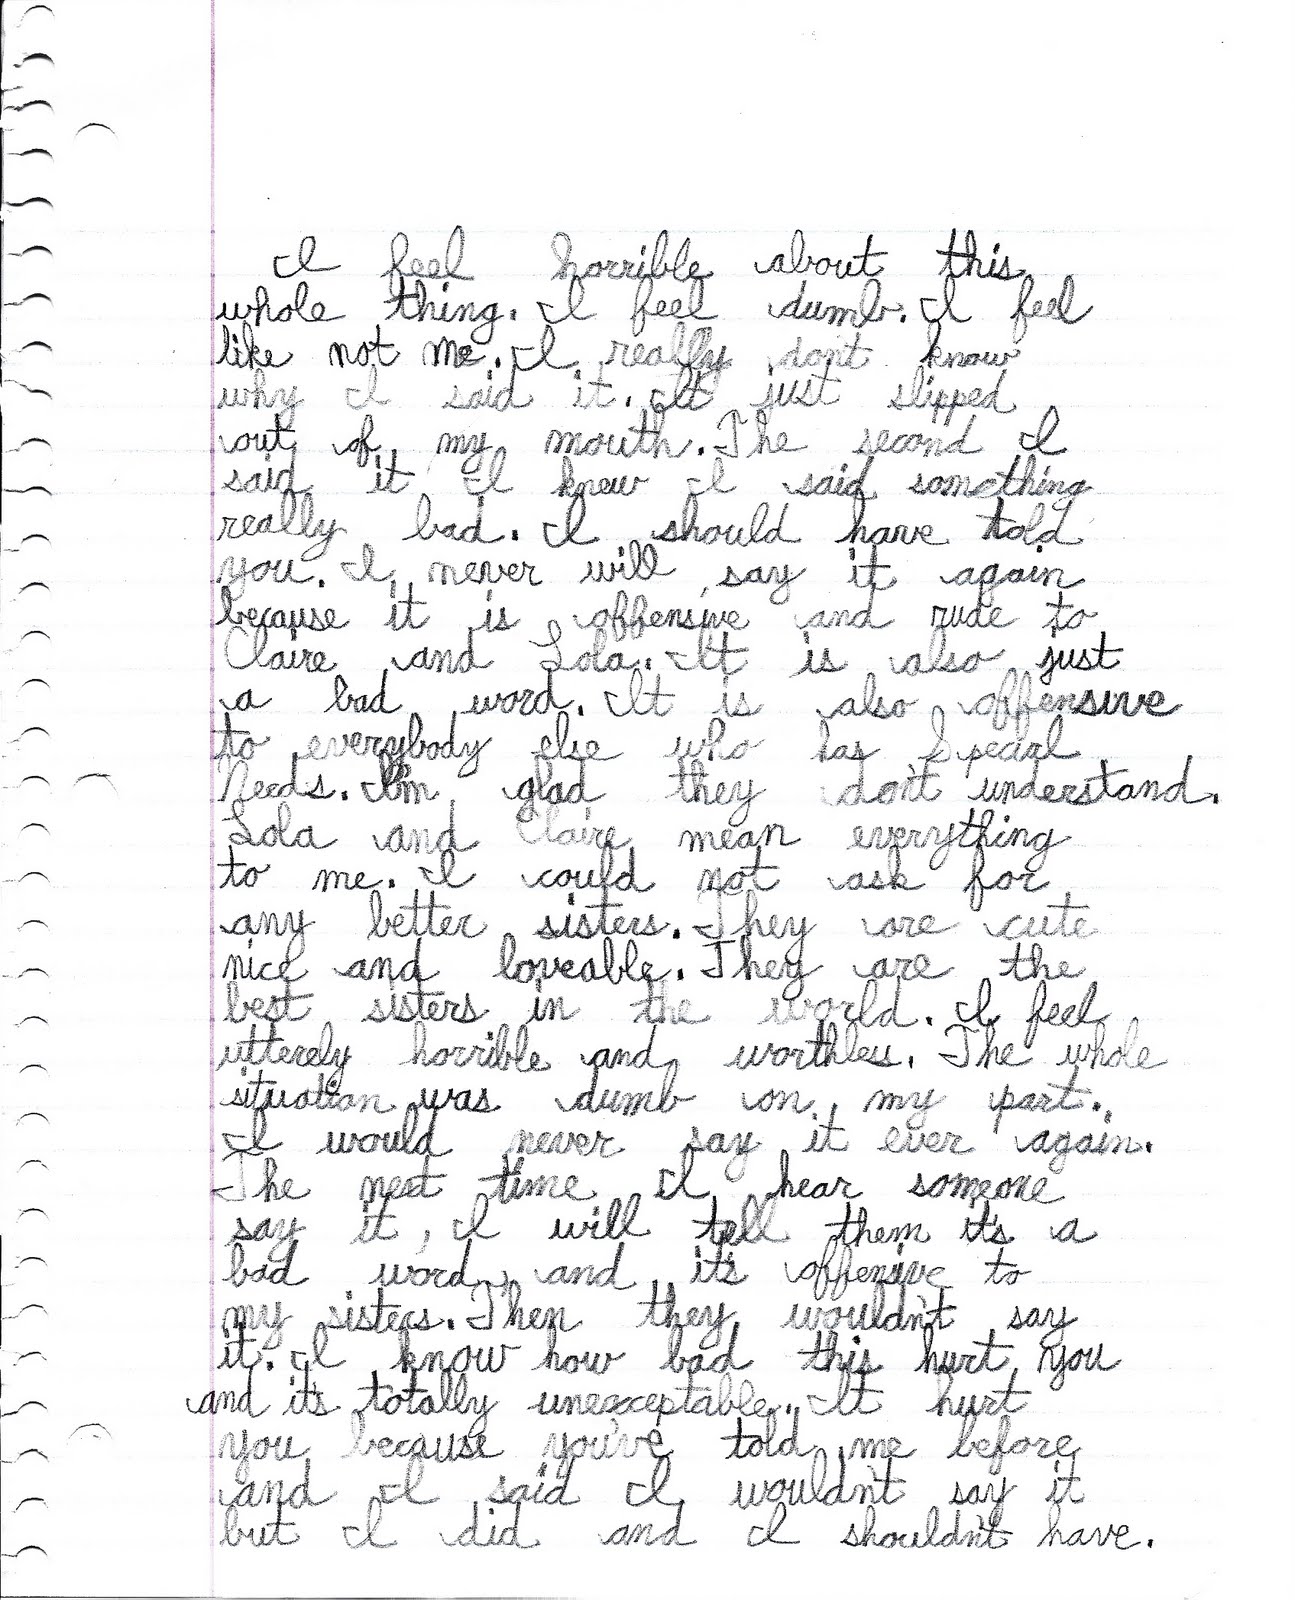 I feel horrible about this
whole thing. I feel dumb. I feel
like not me. I really don't know
why I said it. It just slipped
out of my mouth. The second I
said it I knew I said something
really bad. I should have told
you. I never will say it again
because it is offensive and rude to
Claire and Lola. It is also just
a bad word. It is also offensive
to everybody else who has Specail
Needs. I'm glad they don't understand.
Lola and Claire mean everything
to me. I could not ask for
any better sisters. They are cute
nice and loveable. They are the
best sisters in the world. I feel
utterely horrible and worthless. The whole
situation was dumb on my part.
I would never say it ever again.
The next time I hear someone
say it, I will tell them it's a
bad word, and it's offensive to
my sisters. Then they wouldn't say
it. I know how bad this hurt you
and it's totally unexceptable. It hurt
you because you've told me before
and I said I wouldn't say it
but I did and I shouldn't have.